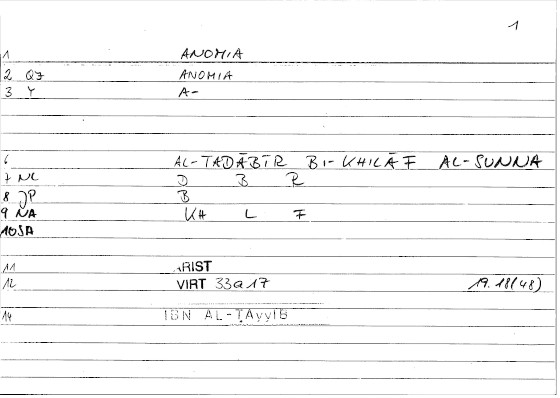 1
1 ANOMIA
2 QJ ANOMIA
3 Y A-
6 AL-TADĀBĪR BI-KHILĀF AL-SUNNA
7 NL D B R
8 JP B
9 NA KH L F
10 SA
11 ARIST
12 VIRT 33a17 19.18(48)
14 IBN AL-ṬAyyIB